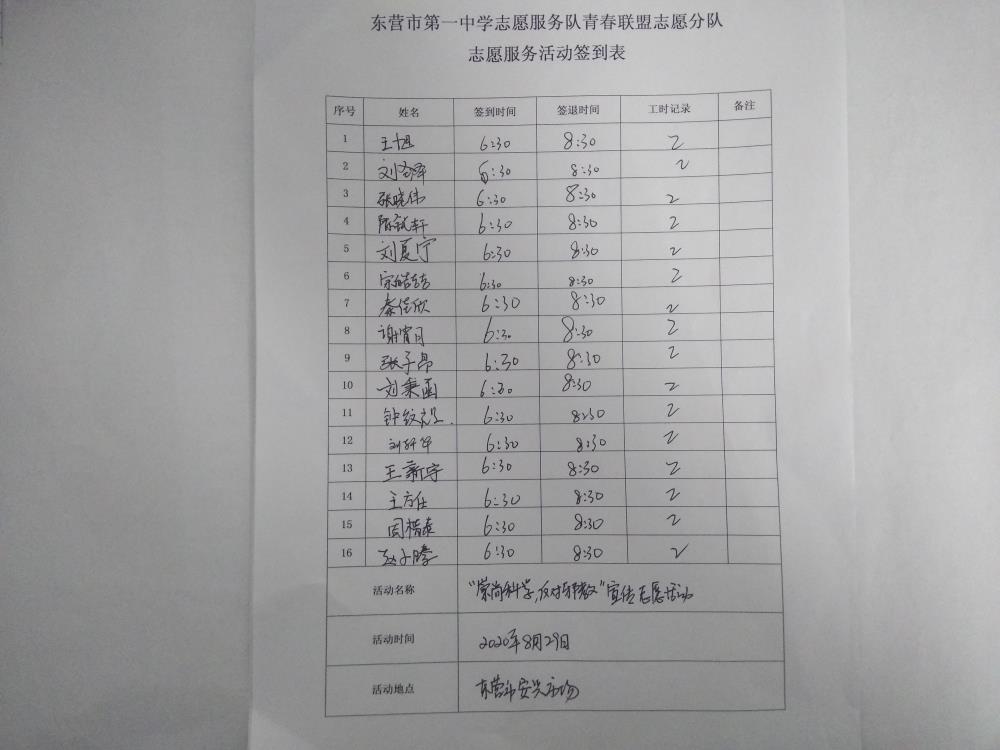 东营市第一中学志愿服务队青春联盟志愿分队
志愿服务活动签到表
序号 姓名 签到时间 签退时间 工时记录 备注
1 王旭 6:30 8:30 2
2 刘 6:30 8:30 2
3 张晓伟 6:30 8:30 2
4 陈 轩 6:30 8:30 2
5 刘夏宁 6:30 8:30 2
6 宋皓 6:30 8:30 2
7 秦佳欣 6:30 8:30 2
8 谢宵月 6:30 8:30 2
9 张子昂 6:30 8:30 2
10 刘秉函 6:30 8:30 2
11 钟 6:30 8:30 2
12 刘 6:30 8:30 2
13 王新宇 6:30 8:30 2
14 王方任 6:30 8:30 2
15 6:30 8:30 2
16 赵子腾 6:30 8:30 2
活动名称 “崇尚科学,反对邪教”宣传志愿活动
活动时间 2020年8月29日
活动地点 东营市安兴市场